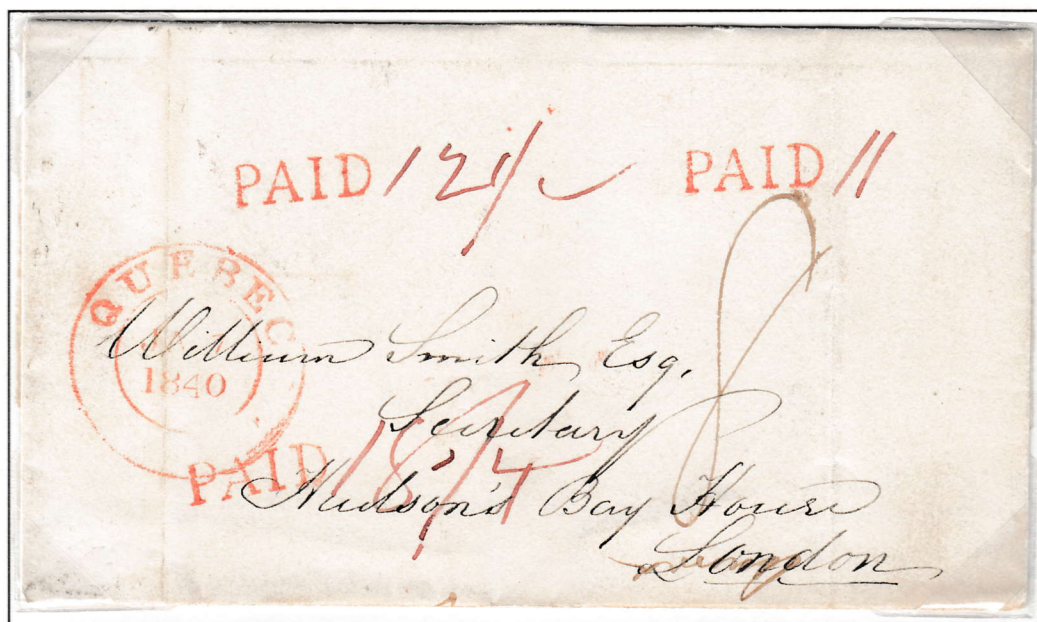 PAID 1 2/ PAID 11
QUEBEC
1840
William Smith Esq.
Secretary
PAID
Hudson's Bay House
London
8